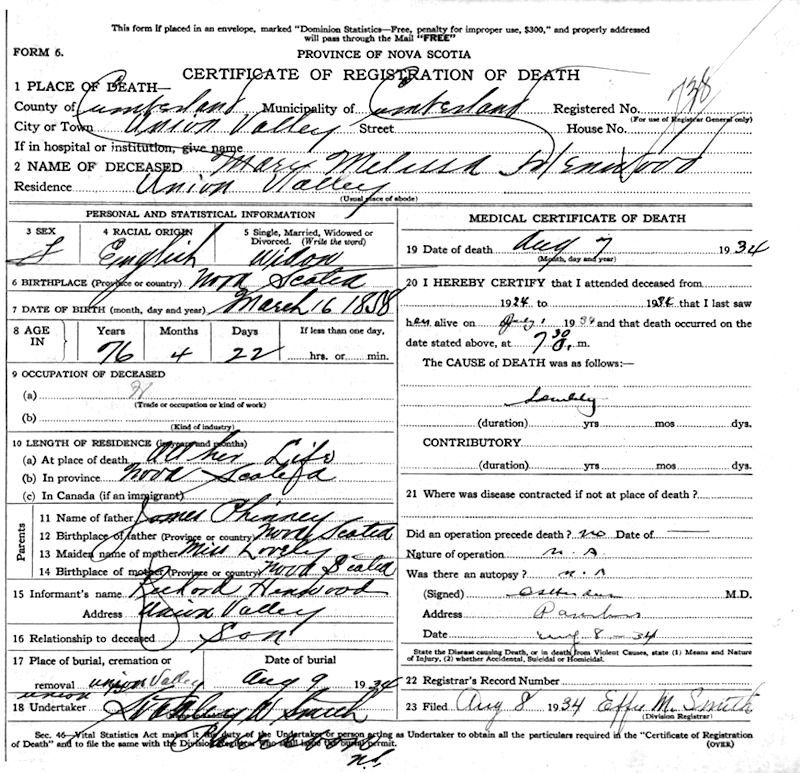 This form if placed in an envelope, marked "Dominion Statistics—Free, penalty for improper use, $300," and properly addressed
will pass through the Mail "FREE"
FORM 6.
PROVINCE OF NOVA SCOTIA
CERTIFICATE OF REGISTRATION OF DEATH
1 PLACE OF DEATH—
County of Cumberland Municipality of Cumberland Registered No. 738
(For use of Registrar General only)
City or Town Union Valley Street House No.
If in hospital or institution, give name
2 NAME OF DECEASED Mary Melissa Henwood
Residence Union Valley
(Usual place of abode)
PERSONAL AND STATISTICAL INFORMATION
3 SEX 4 RACIAL ORIGIN 5 Single, Married, Widowed or Divorced. (Write the word)
f English Widow
6 BIRTHPLACE (Province or country) Nova Scotia
7 DATE OF BIRTH (month, day and year) March 16 1858
8 AGE IN Years Months Days If less than one day,
76 4 22 hrs. or min.
9 OCCUPATION OF DECEASED
(a)
(Trade or occupation or kind of work)
(b)
(Kind of industry)
10 LENGTH OF RESIDENCE (in years and months)
(a) At place of death All her Life
(b) In province Nova Scotia
(c) In Canada (if an immigrant)
Parents
11 Name of father James Phinney
12 Birthplace of father (Province or country) Nova Scotia
13 Maiden name of mother Miss Lovely
14 Birthplace of mother (Province or country) Nova Scotia
15 Informant's name Richard Henwood
Address Union Valley
16 Relationship to deceased Son
17 Place of burial, cremation or Date of burial
removal Union Valley Aug 9 1934
18 Undertaker Stanley W Smith
MEDICAL CERTIFICATE OF DEATH
19 Date of death Aug 7 1934
(Month, day and year)
20 I HEREBY CERTIFY that I attended deceased from
1924 to 1934 that I last saw
her alive on 1934 and that death occurred on
date stated above, at 7 30 m.
The CAUSE of DEATH was as follows:—
(duration) yrs mos dys.
CONTRIBUTORY
(duration) yrs mos dys.
21 Where was disease contracted if not at place of death?
Did an operation precede death? no Date of —
Nature of operation
Was there an autopsy?
(Signed) M.D.
Address
Date Aug 8 - 34
State the Disease causing Death, or in death from Violent Causes, state (1) Means and Nature
of Injury, (2) whether Accidental, Suicidal or Homicidal.
22 Registrar's Record Number
23 Filed Aug 8 1934 Effie M. Smith
(Division Registrar)
Sec. 46—Vital Statistics Act makes it the duty of the Undertaker or person acting as Undertaker to obtain all the particulars required in the "Certificate of Registration
of Death" and to file the same with the Division Registrar who shall issue the burial permit.
(OVER)